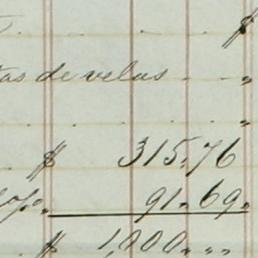 $
tas de velas - - "
"
$ 315.76
91.69.
$ 1,000 " "